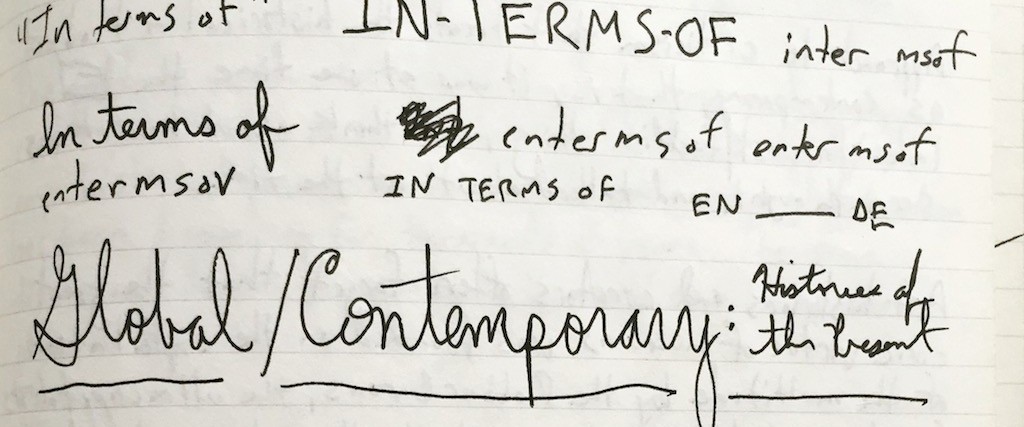 "In terms of" IN-TERMS-OF inter msof
In terms of entermsof enter msof
entermsov IN TERMS OF EN ___ DE
Global/Contemporary: Histories of
the Present